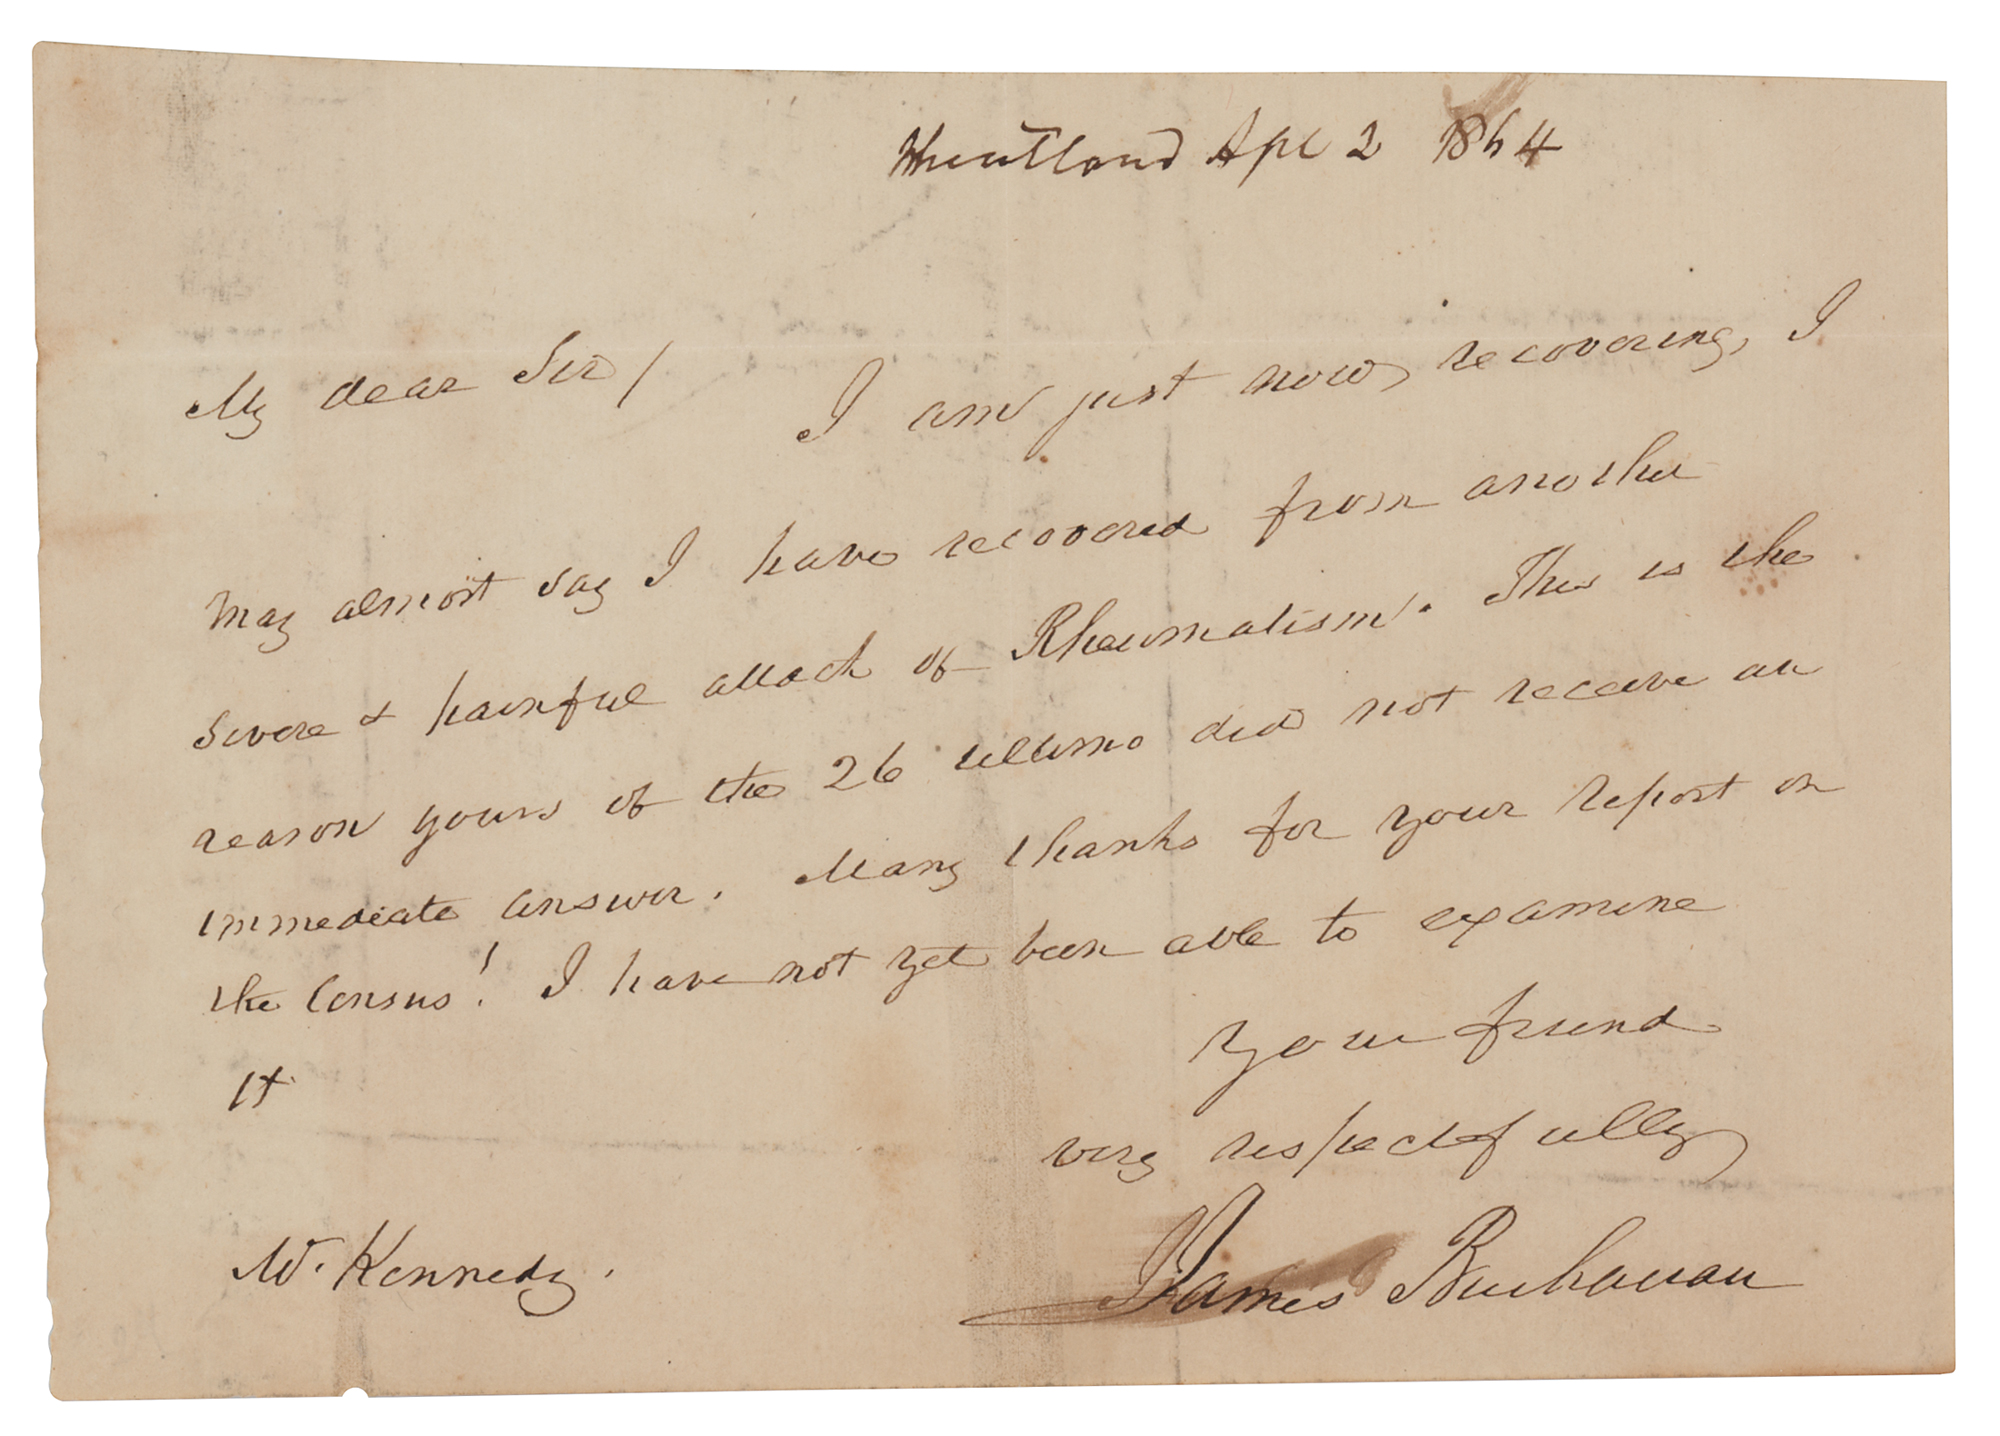 Wheatland Apl 2 1864
My dear Sir/ I am just now, recovering, I
may almost say I have recovered from another
severe & painful attack of Rheumatism. This is the
reason yours of the 26 ultimo did not receive an
immediate answer. Many thanks for your report on
the Census! I have not yet been able to examine
it
Your friend
very respectfully
James Buchanan
Mr. Kennedy.